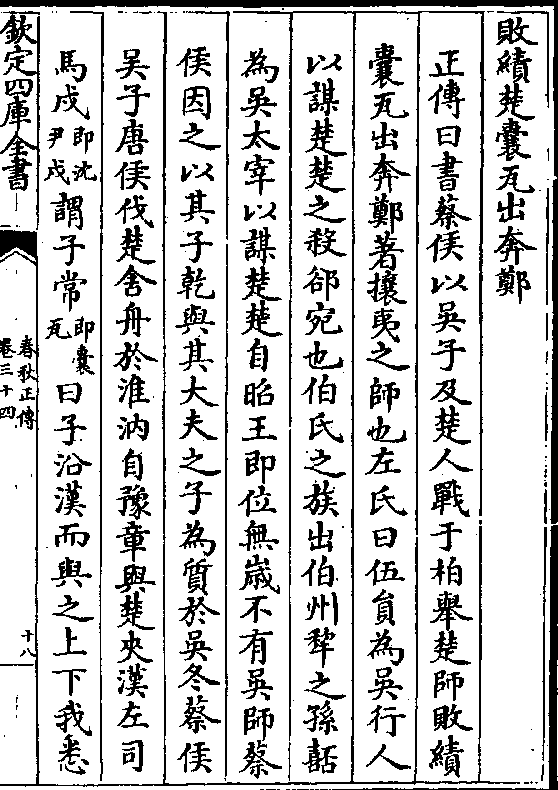 敗績楚囊瓦出奔鄭
正傳曰書蔡侯以吳子及楚人戰于柏舉楚師敗績
囊瓦出奔鄭著攘夷之師也左氏曰伍員為吳行人
以謀楚楚之殺郤宛也伯氏之族出伯州犂之孫嚭
為吳太宰以謀楚楚自昭王即位無歲不有吳師蔡
侯因之以其子乾與其大夫之子為質於吳冬蔡侯
吳子唐侯伐楚舍舟於淮汭自豫章與楚夾漢左司
馬戌即沈尹戌謂子常即囊瓦曰子沿漢而與之上下我悉
欽定四庫全書
春秋正傳
卷三十四
十八